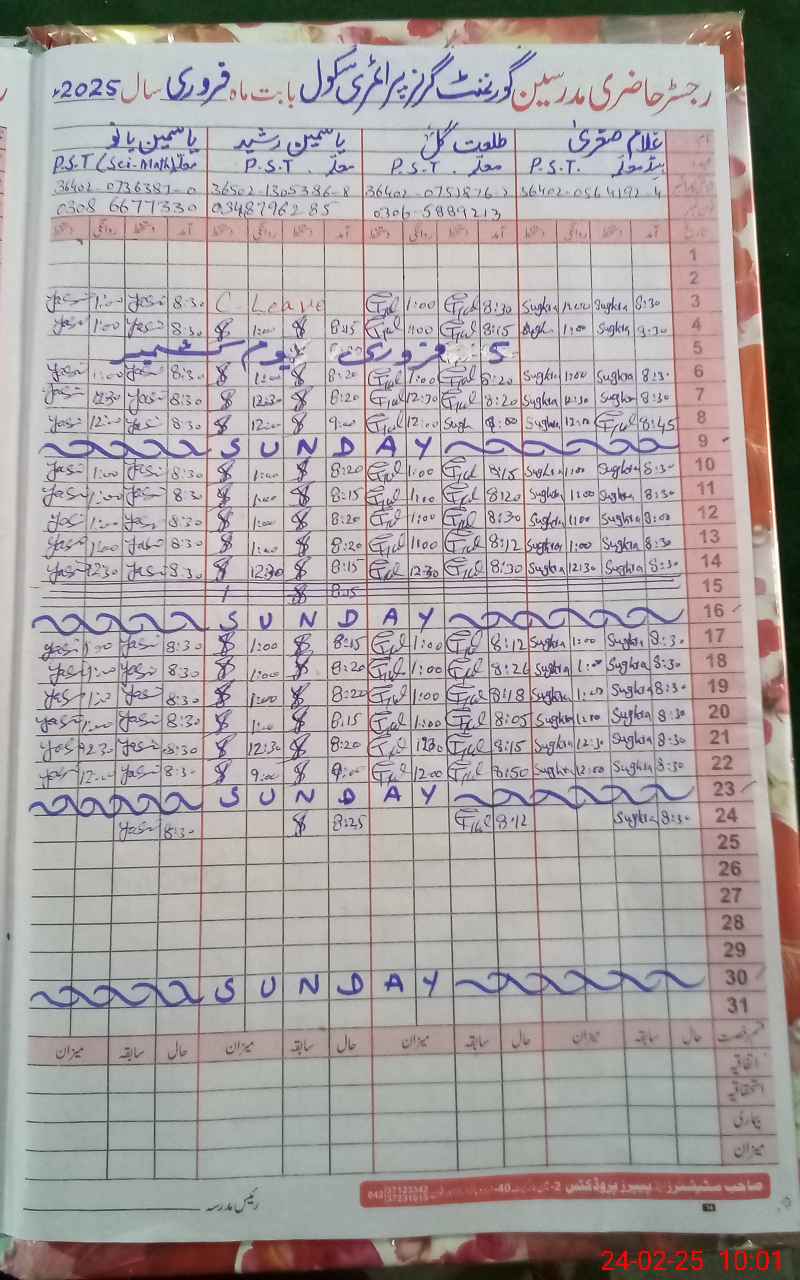 رجسٹر حاضری مدرسین گورنمنٹ گرلز پرائمری سکول بابت ماہ فروری سال 2025ء
غلام صغریٰ طلعت گل یاسمین رشید یاسمین بانو
P.S.T. معلمہ P.S.T معلمہ P.S.T معلمہ P.S.T (Sci-Math)
36402-0751876-2 36502-1305386-8 36402-0736387-0
0306-5889213 03487962285 0308 6677330
تاریخ آمد دستخط روانگی دستخط آمد دستخط روانگی دستخط آمد دستخط روانگی دستخط آمد دستخط روانگی دستخط
1
2
3 8:30 Sughra Sughra 8:30 Gul 1:00 Gul C. Leave 8:30 Yasi 1:00 Yasi
4 8:30 Sughra 1:00 8:15 Gul 1:00 Gul 8:15 1:00 8:30 Yasi 1:00 Yasi
5 5 فروری یوم کشمیر
6 8:30 Sughra 1:00 Sughra 8:20 Gul 1:00 Gul 8:20 1:00 8:30 Yasi 1:00 Yasi
7 8:30 Sughra 12:30 Sughra 8:20 Gul 12:30 Gul 8:20 12:30 8:30 Yasi 12:30 Yasi
8 8:45 Gul 12:00 Sughra 12:00 Gul 9:00 12:00 8:30 Yasi 12:00 Yasi
9 SUNDAY
10 8:30 Sughra 1:00 Sughra 8:15 Gul 1:00 Gul 8:20 1:00 8:30 Yasi 1:00 Yasi
11 8:30 Sughra 1:00 Sughra 8:20 Gul 1:00 Gul 8:15 1:00 8:30 Yasi 1:00 Yasi
12 Sughra 1:00 Sughra 8:30 Gul 1:00 Gul 8:20 1:00 8:30 Yasi 1:00 Yasi
13 8:30 Sughra 1:00 Sughra 8:12 Gul 1:00 Gul 8:20 1:00 8:30 Yasi 1:00 Yasi
14 8:30 Sughra 12:30 Sughra 8:30 Gul 12:30 Gul 8:15 12:30 8:30 Yasi 12:30 Yasi
15 8:15
16 SUNDAY
17 8:30 Sughra 1:00 Sughra 8:12 Gul 1:00 Gul 8:15 1:00 8:30 Yasi 1:00 Yasi
18 8:30 Sughra 1:00 Sughra 8:26 Gul 1:00 Gul 8:20 1:00 8:30 Yasi 1:00 Yasi
19 8:30 Sughra 1:00 Sughra 8:18 Gul 1:00 Gul 8:20 1:00 8:30 Yasi 1:00 Yasi
20 8:30 Sughra 1:00 Sughra 8:05 Gul 1:00 Gul 8:15 1:00 8:30 Yasi 1:00 Yasi
21 8:30 Sughra 12:30 Sughra 8:15 Gul 12:30 Gul 8:20 12:30 8:30 Yasi 12:30 Yasi
22 8:30 Sughra 12:00 Sughra 8:50 Gul 12:00 Gul 9:00 9:00 8:30 Yasi 12:00 Yasi
23 SUNDAY
24 8:30 Sughra 8:12 Gul 8:25 8:30 Yasi
25
26
27
28
29
30 SUNDAY
31
قسم رخصت حال سابقہ میزان حال سابقہ میزان حال سابقہ میزان حال سابقہ میزان
اتفاقیہ
استحقاقیہ
بیماری
میزان
صاحب سٹیشنرز پیپرز پروڈکٹس 042 37123342 37231015
رئیس مدرسہ
24-02-25 10:01